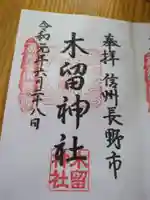 奉拝 信州長野市
木留神社
令和元年六月二十八日
木留
神社